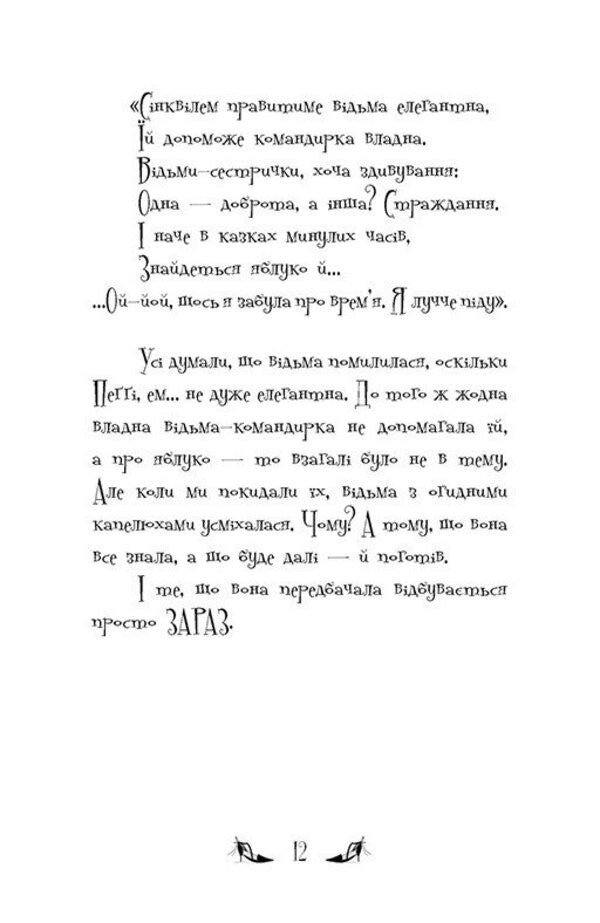 «Сінквілем правитиме відьма елегантна,
Їй допоможе командирка владна.
Відьми-сестрички, хоча здивування:
Одна — доброта, а інша? Страждання.
І наче в казках минулих часів,
Знайдеться яблуко й...
...Ой-йой, щось я забула про врем'я. Я лучче піду».
Усі думали, що відьма помилилася, оскільки
Пеґґі, ем... не дуже елегантна. До того ж жодна
владна відьма-командирка не допомагала їй,
а про яблуко — то взагалі було не в тему.
Але коли ми покидали їх, відьма з огидними
капелюхами усміхалася. Чому? А тому, що вона
все знала, а що буде далі — й поготів.
І те, що вона передбачала відбувається
просто ЗАРАЗ.
12